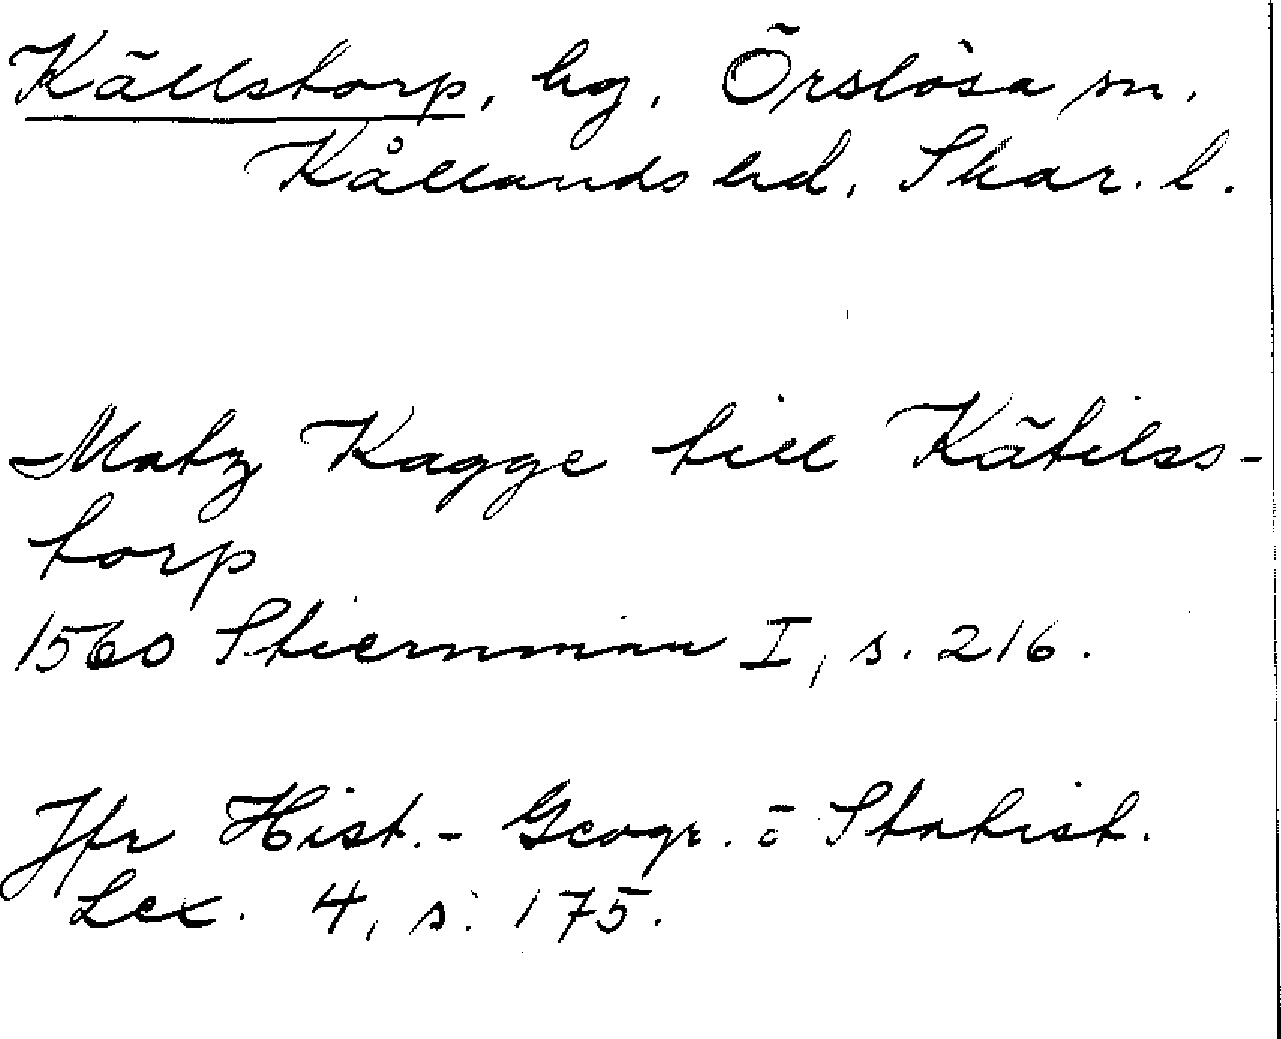 Källstorp, hg, Örslösa sn,
Kållands hd, Skar. l.
Matz Kagge till Kätilss-
torp
1560 Stiernman I, s. 216.
Jfr Hist.- Geogr. o Statist.
Lex. 4, s. 175.